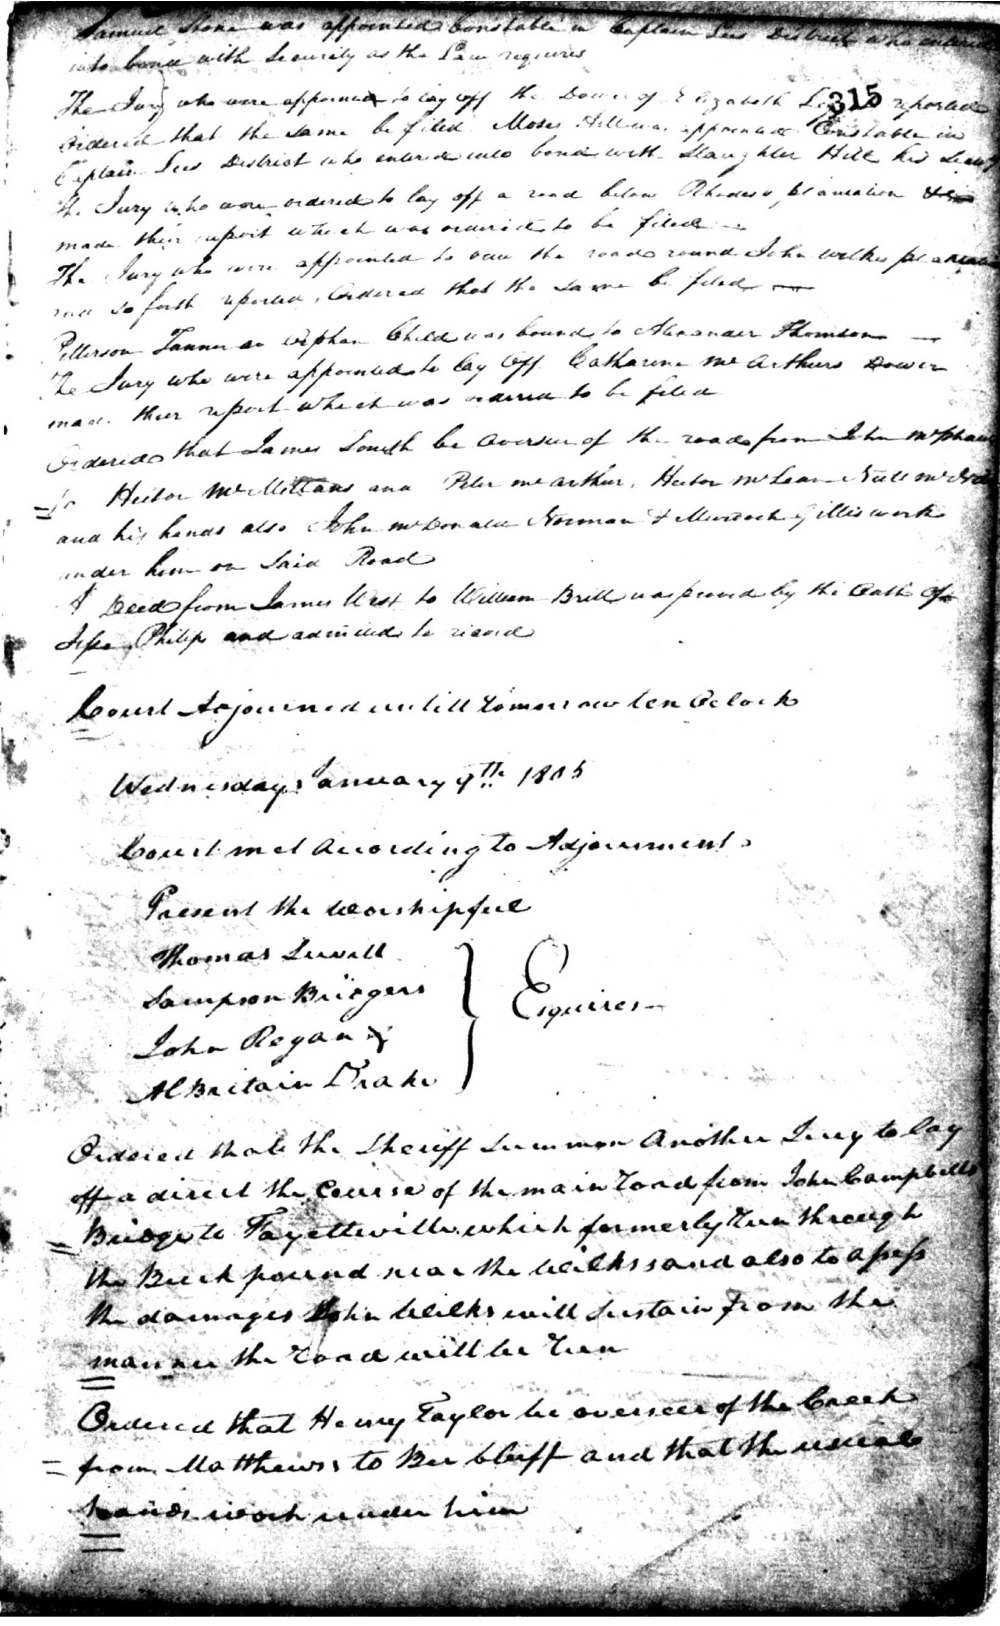 Samuel Stone was appointed Constable in Captain Lees District who entered
into bond with Security as the Law requires
315
The Jury who were appointed to lay off the Dower of Elizabeth reported
Ordered that the same be filed Moses Hill was appointed Constable in
Captain Lees District who entered into bond with Slaughter Hill his Security
The Jury who were ordered to lay off a road below Rhodes's plantation
made their report which was ordered to be filed
The Jury who were appointed to view the road round John Wilkes plantation
and so forth reported, Ordered that the same be filed
Pitterson Tanner an Orphan Child was bound to Alexander Thomson
The Jury who were appointed to lay off Catharine McArthurs Dower
made their report which was ordered to be filed
Ordered that James South be Overseer of the road from John McPhaul
to Hector McMillans and Peter McArthur, Hector McLean Niell
and his hands also John McDonald Norman & Murdoch Gillis work
under him on Said Road
A Deed from James West to William Britt was proved by the Oath of
Jesse Philip and admitted to record
Court Adjourned untill tomorrow ten Oclock
Wednesday January 9th 1805
Court met According to Adjournment
Present the Worshipful
Thomas
Sampson Bridgers
John Regan
AlBritain Drake
Esquires
Ordered that the Sheriff Summon Another Jury to lay
off a direct the Course of the main road from John Campbells
Bridge to Fayetteville which formerly run through
the Beech pound near the Wilkss and also to assess
the damages John Wilks will Sustain from the
manner the road will be run
Ordered that Henry Taylor be overseer of the Creek
from Matthews's to Bee bluff and that the usual
hands work under him